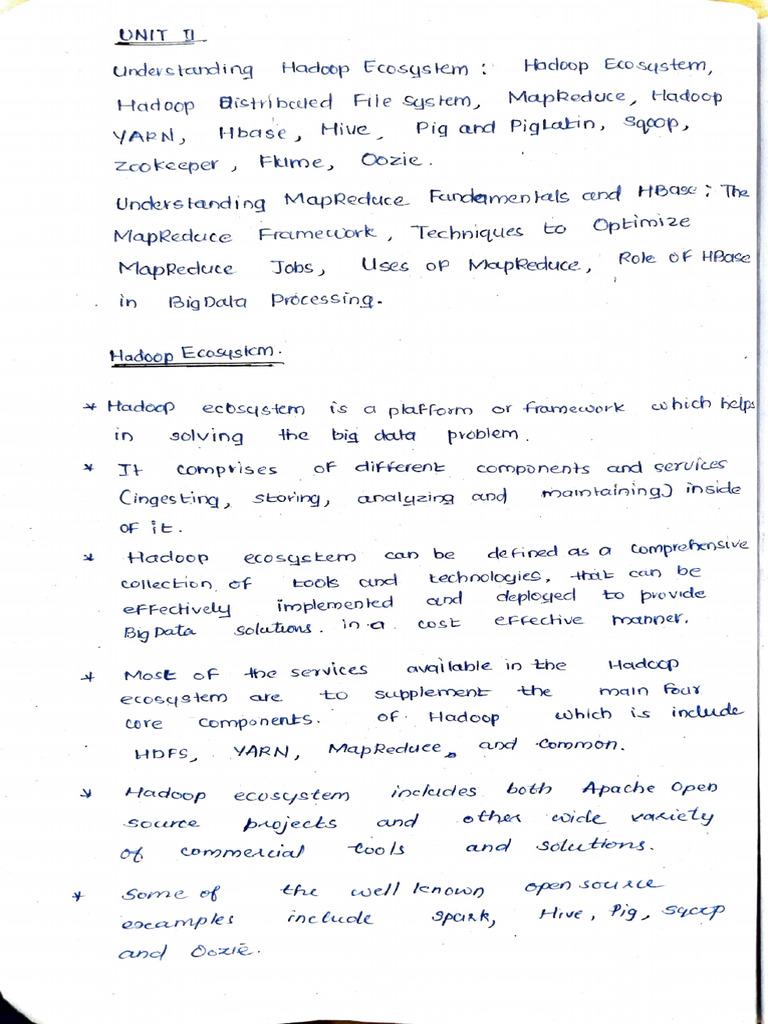 UNIT II
Understanding Hadoop Ecosystem : Hadoop Ecosystem,
Hadoop Distributed File System, MapReduce, Hadoop
YARN, Hbase, Hive, Pig and PigLatin, Sqoop,
Zookeeper, Flume, Oozie.
Understanding MapReduce Fundamentals and HBase : The
MapReduce Framework, Techniques to Optimize
MapReduce Jobs, Uses of MapReduce, Role of HBase
in BigData Processing.
Hadoop Ecosystem.
* Hadoop ecosystem is a platform or framework which helps
in solving the big data problem.
* It comprises of different components and services
(ingesting, storing, analyzing and maintaining) inside
of it.
* Hadoop ecosystem can be defined as a comprehensive
collection of tools and technologies, that can be
effectively implemented and deployed to provide
BigData solutions. in a cost effective manner.
* Most of the services available in the Hadoop
ecosystem are to supplement the main four
core components. of Hadoop which is include
HDFS, YARN, MapReduce, and common.
* Hadoop ecosystem includes both Apache Open
source projects and other wide variety
of commercial tools and solutions.
* Some of the well known open source
examples include spark, Hive, Pig, sqoop
and Oozie.